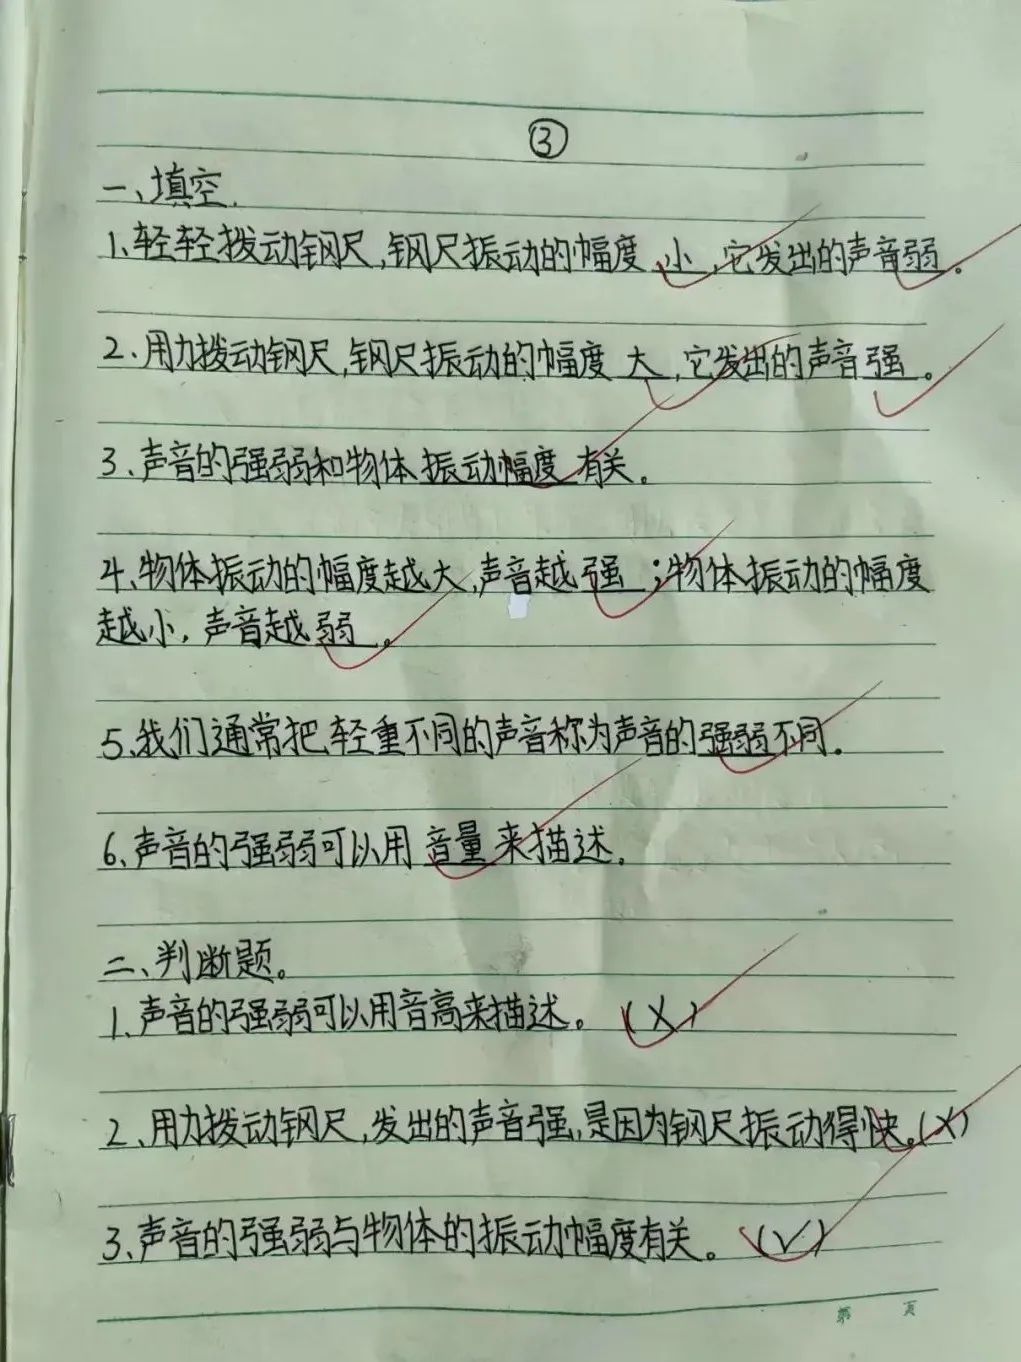 ③
一、填空.
1、轻轻拨动钢尺,钢尺振动的幅度 小,它发出的声音弱。
2、用力拨动钢尺,钢尺振动的幅度 大,它发出的声音强。
3、声音的强弱和物体振动幅度有关。
4、物体振动的幅度越大,声音越强;物体振动的幅度
越小,声音越弱。
5、我们通常把轻重不同的声音称为声音的强弱不同.
6、声音的强弱可以用 音量 来描述.
二、判断题。
1、声音的强弱可以用音高来描述。 (X)
2、用力拨动钢尺,发出的声音强,是因为钢尺振动得快。(X)
3、声音的强弱与物体的振动幅度有关。 (√)
第 页